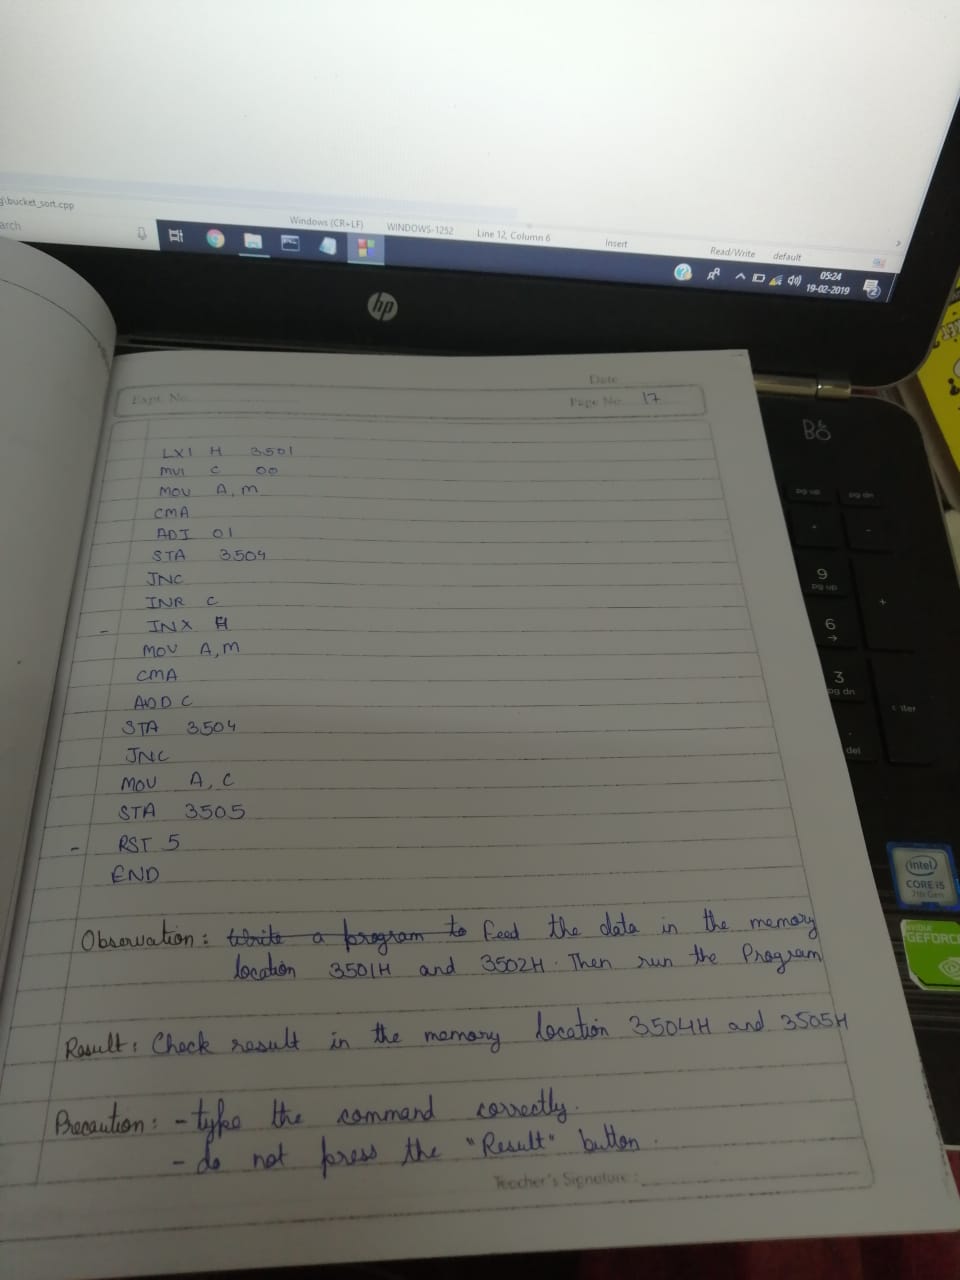 g\bucket_sort.cpp
arch
Windows (CR+LF) WINDOWS-1252 Line 12, Column 6 Insert Read/Write default
05:24
19-02-2019
2
hp
Date
Expt. No.
Page No. 17
LXI H 3501
MVI C 00
MOV A, M
CMA
ADI 01
STA 3504
JNC
INR C
- INX H
MOV A, M
CMA
ADD C
STA 3504
JNC
MOV A, C
STA 3505
- RST 5
END
Observation : Write a program to Feed the data in the memory
location 3501H and 3502H. Then run the Program
Result : Check result in the memory location 3504H and 3505H
Precaution : - type the command correctly.
- do not press the "Result" button.
Teacher's Signature :
pg up
pg dn
9
pg up
+
6
→
3
pg dn
.
del
intel
CORE i5
7th Gen
NVIDIA
GEFORCE